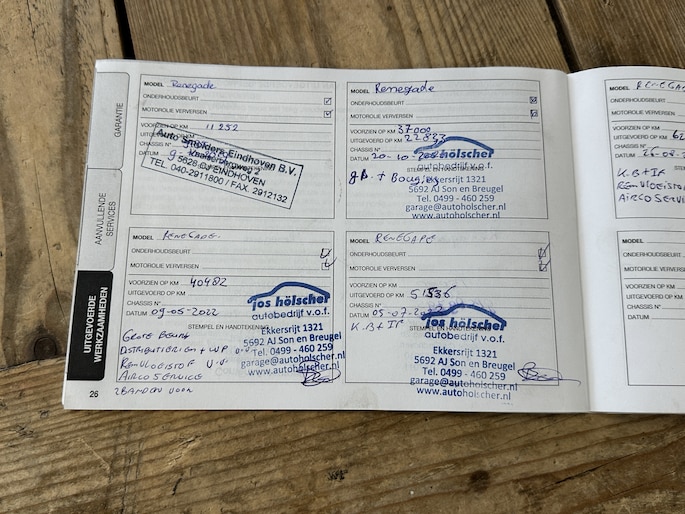 GARANTIE
AANVULLENDE
SERVICES
UITGEVOERDE
WERKZAAMHEDEN
26
MODEL Renegade
ONDERHOUDSBEURT
MOTOROLIE VERVERSEN
VOORZIEN OP KM
UITGEVOERD OP KM 11252
CHASSIS N°
DATUM
Auto Smolders Eindhoven B.V.
5628 DJ EINDHOVEN
TEL. 040-2911800 / FAX. 2912132
MODEL Renegade
ONDERHOUDSBEURT
MOTOROLIE VERVERSEN
VOORZIEN OP KM 37000
UITGEVOERD OP KM 22833
CHASSIS N°
DATUM 20-10-
STEMPEL EN HANDTEKENING
jos hölscher
autobedrijf v.o.f.
gB. + Bougies
Ekkersrijt 1321
5692 AJ Son en Breugel
Tel. 0499 - 460 259
garage@autoholscher.nl
www.autoholscher.nl
MODEL RENEGADE
ONDERHOUDSBEURT
MOTOROLIE VERVERSEN
VOORZIEN OP KM 40482
UITGEVOERD OP KM
CHASSIS N°
DATUM 09-05-2022
STEMPEL EN HANDTEKENING
jos hölscher
autobedrijf v.o.f.
Ekkersrijt 1321
5692 AJ Son en Breugel
Tel. 0499 - 460 259
garage@autoholscher.nl
www.autoholscher.nl
GROTE BEURT
DISTRIBUTIERIEM + WP
REMVLOEISTOF
AIRCO SERVICE
2 BANDEN VOOR
MODEL RENEGADE
ONDERHOUDSBEURT
MOTOROLIE VERVERSEN
VOORZIEN OP KM
UITGEVOERD OP KM 51536
CHASSIS N°
DATUM 05-07-
K.B + IF
jos hölscher
autobedrijf v.o.f.
Ekkersrijt 1321
5692 AJ Son en Breugel
Tel. 0499 - 460 259
garage@autoholscher.nl
www.autoholscher.nl
MODEL
ONDERHOUDSBEURT
MOTOROLIE
VOORZIEN OP KM
UITGEVOERD
CHASSIS N°
DATUM
K.B + IF
REMVLOEISTOF
AIRCO SERVICE
MODEL
ONDERHOUDSBEURT
MOTOROLIE
VOORZIEN
UITGEVOERD
CHASSIS N°
DATUM